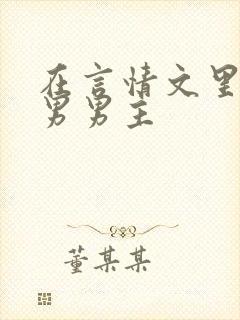 在言情文里
男男主
董某某